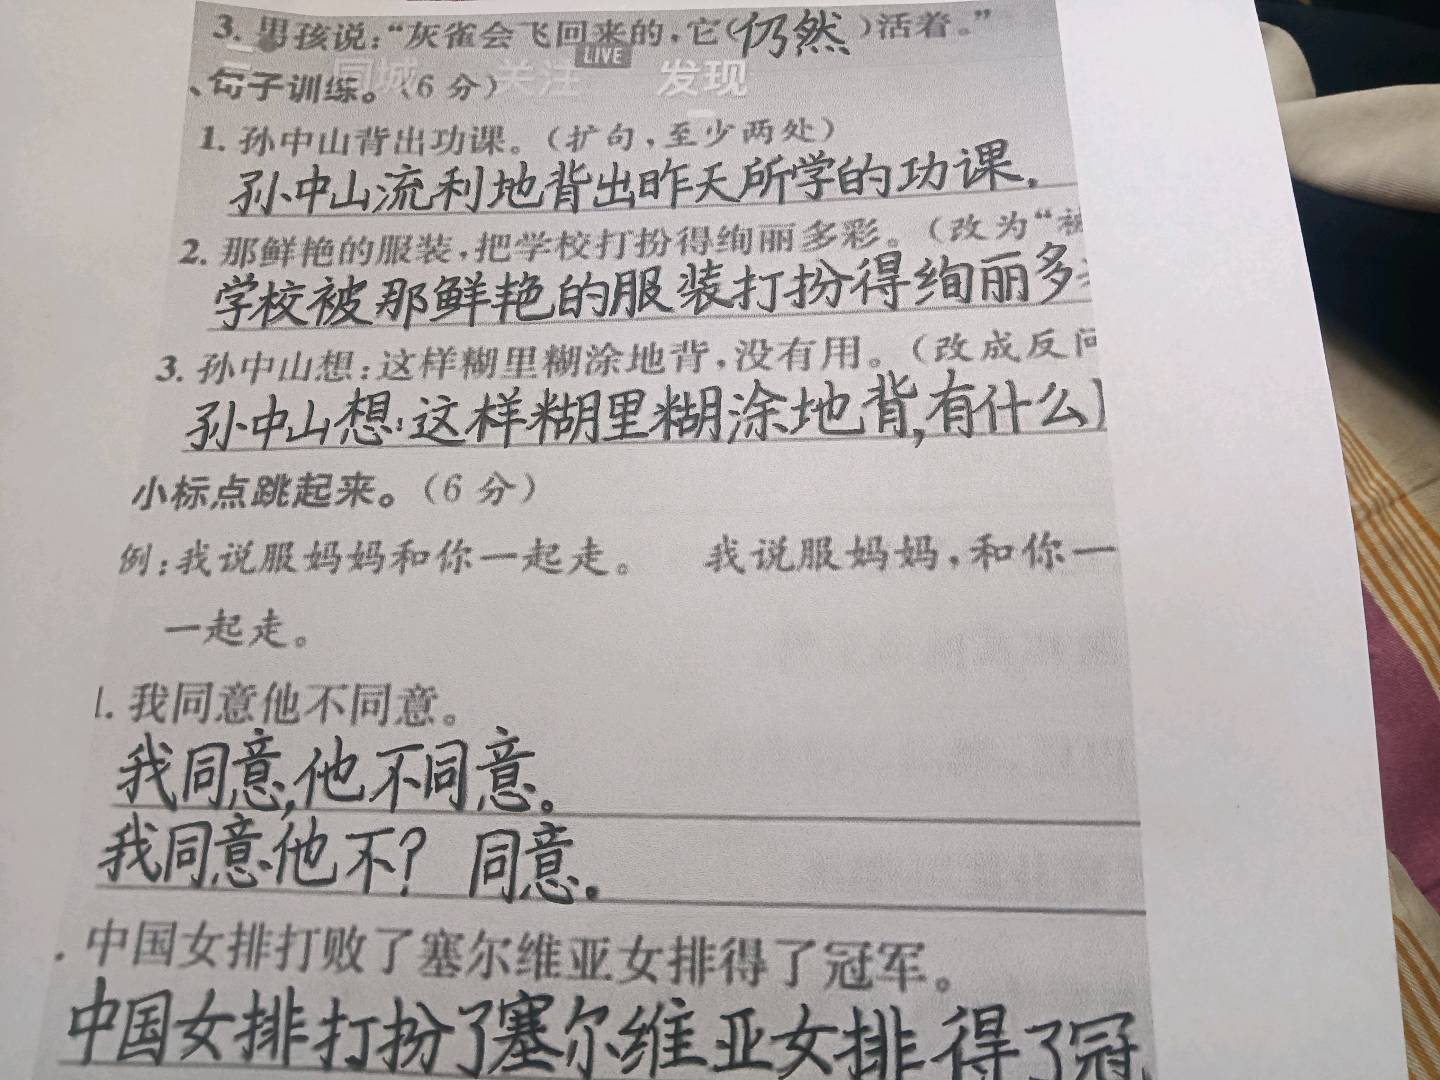 3. 男孩说：“灰雀会飞回来的，它（仍然）活着。”
同城 关注 LIVE 发现
、句子训练。（6 分）
1. 孙中山背出功课。（扩句，至少两处）
孙中山流利地背出昨天所学的功课.
2. 那鲜艳的服装，把学校打扮得绚丽多彩。（改为“被
学校被那鲜艳的服装打扮得绚丽多
3. 孙中山想：这样糊里糊涂地背，没有用。（改成反问
孙中山想：这样糊里糊涂地背，有什么
小标点跳起来。（6 分）
例：我说服妈妈和你一起走。 我说服妈妈，和你一
一起走。
1. 我同意他不同意。
我同意,他不同意。
我同意他不？ 同意。
. 中国女排打败了塞尔维亚女排得了冠军。
中国女排打扮了塞尔维亚女排得了冠